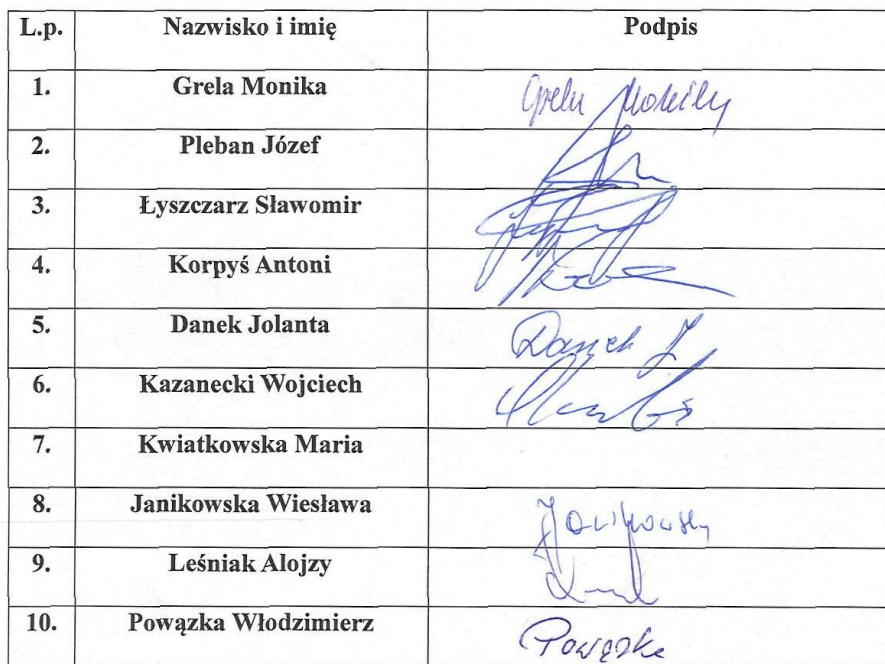 L.p. Nazwisko i imię Podpis
1. Grela Monika Grela Monika
2. Pleban Józef
3. Łyszczarz Sławomir
4. Korpyś Antoni
5. Danek Jolanta Danek J
6. Kazanecki Wojciech
7. Kwiatkowska Maria
8. Janikowska Wiesława Janikowska
9. Leśniak Alojzy
10. Powązka Włodzimierz Powązka